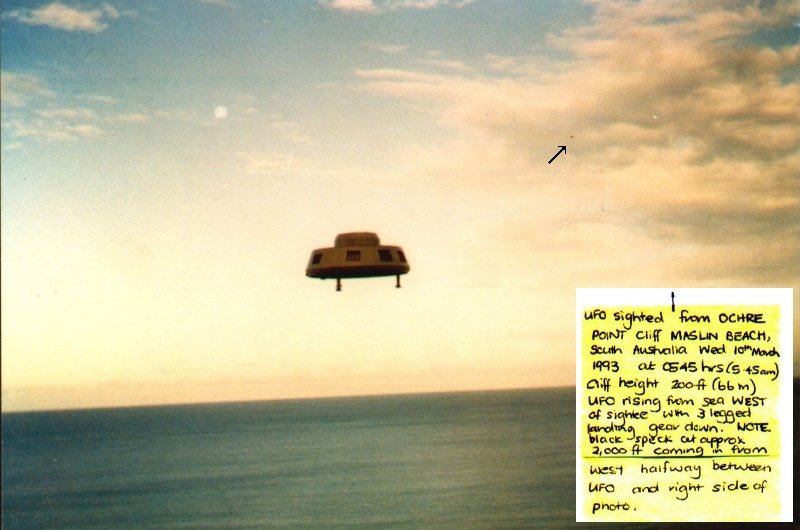 UFO sighted from OCHRE
POINT Cliff MASLIN BEACH,
South Australia Wed 10th March
1993 at 0545 hrs (5.45am)
Cliff height 200ft (66m)
UFO rising from sea WEST
of sightee with 3 legged
landing gear down. NOTE
black speck at approx
2,000 ft coming in from
west halfway between
UFO and right side of
photo.